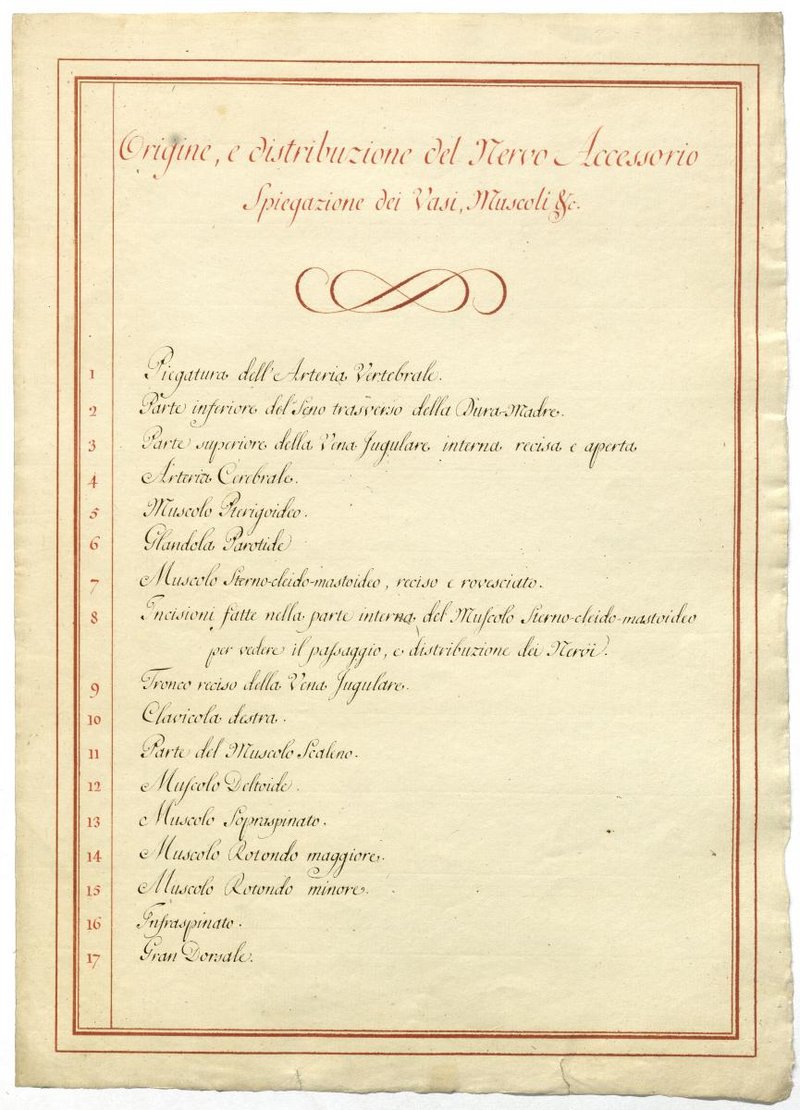 Origine, e distribuzione del Nervo Accessorio
Spiegazione dei Vasi, Muscoli &c.
1 Piegatura dell'Arteria Vertebrale.
2 Parte inferiore del Seno trasverso della Dura-Madre.
3 Parte superiore della Vena Jugulare interna recisa e aperta
4 Arteria Cerebrale.
5 Muscolo Pterigoideo.
6 Glandola Parotide
7 Muscolo Sterno-cleido-mastoideo, reciso e rovesciato.
8 Incisioni fatte nella parte interna del Muſcolo Sterno-cleido-mastoideo
per vedere il paſsaggio, e distribuzione dei Nervi.
9 Tronco reciso della Vena Jugulare.
10 Clavicola destra.
11 Parte del Muscolo Scaleno.
12 Muſcolo Deltoide.
13 Muscolo Sopraspinato.
14 Muscolo Rotondo maggiore.
15 Muscolo Rotondo minore.
16 Infraspinato.
17 Gran Dorsale.